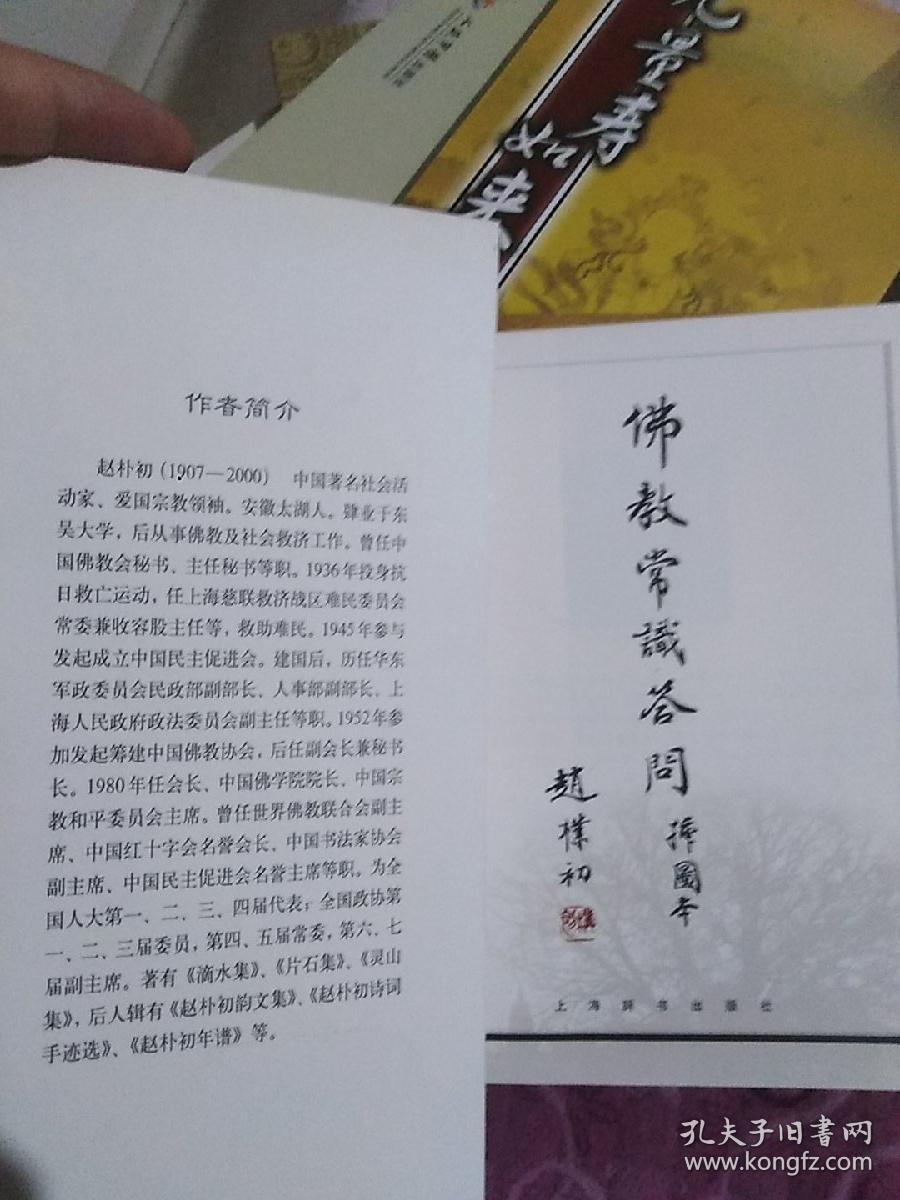 无量寿
如来
作者简介
赵朴初(1907—2000) 中国著名社会活
动家、爱国宗教领袖。安徽太湖人。肄业于东
吴大学,后从事佛教及社会救济工作。曾任中
国佛教会秘书、主任秘书等职。1936年投身抗
日救亡运动,任上海慈联救济战区难民委员会
常委兼收容股主任等,救助难民。1945年参与
发起成立中国民主促进会。建国后,历任华东
军政委员会民政部副部长、人事部副部长、上
海人民政府政法委员会副主任等职。1952年参
加发起筹建中国佛教协会,后任副会长兼秘书
长。1980年任会长、中国佛学院院长、中国宗
教和平委员会主席。曾任世界佛教联合会副主
席、中国红十字会名誉会长、中国书法家协会
副主席、中国民主促进会名誉主席等职。为全
国人大第一、二、三、四届代表;全国政协第
一、二、三届委员,第四、五届常委,第六、七
届副主席。著有《滴水集》、《片石集》、《灵山
集》,后人辑有《赵朴初韵文集》、《赵朴初诗词
手迹选》、《赵朴初年谱》等。
佛教常識答問
插圖本
趙樸初
上海辞书出版社
孔夫子旧書网
www.kongfz.com